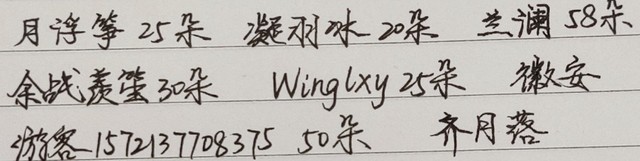 月浮筝 25朵 凝羽冰 20朵 兰澜 58朵
余战羡萤 30朵 Winglxy 25朵 徽安
游客1572137708375 50朵 齐月落